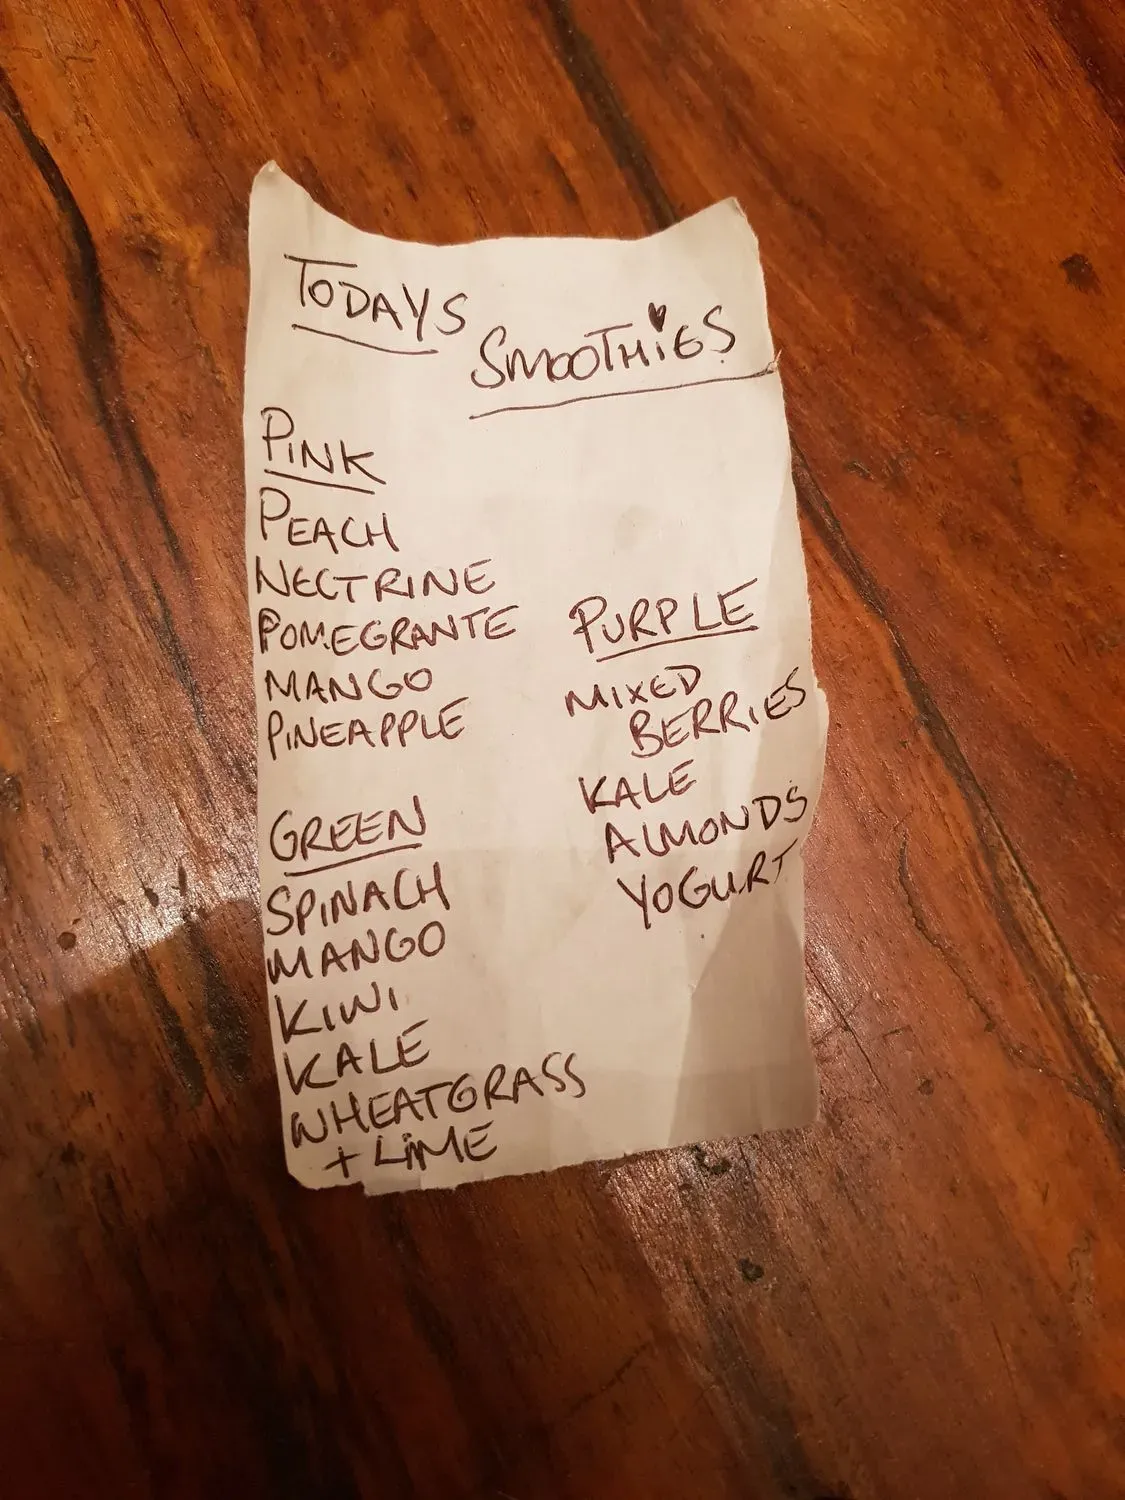 TODAYS
SMOOTHiES
PiNK
PEACH
NECTRINE
POMEGRANTE
MANGO
PiNEAPPLE
GREEN
SPiNACH
MANGO
KIWI
KALE
WHEATGRASS
+ LiME
PURPLE
MIXED
BERRiES
KALE
ALMONDS
YOGURT